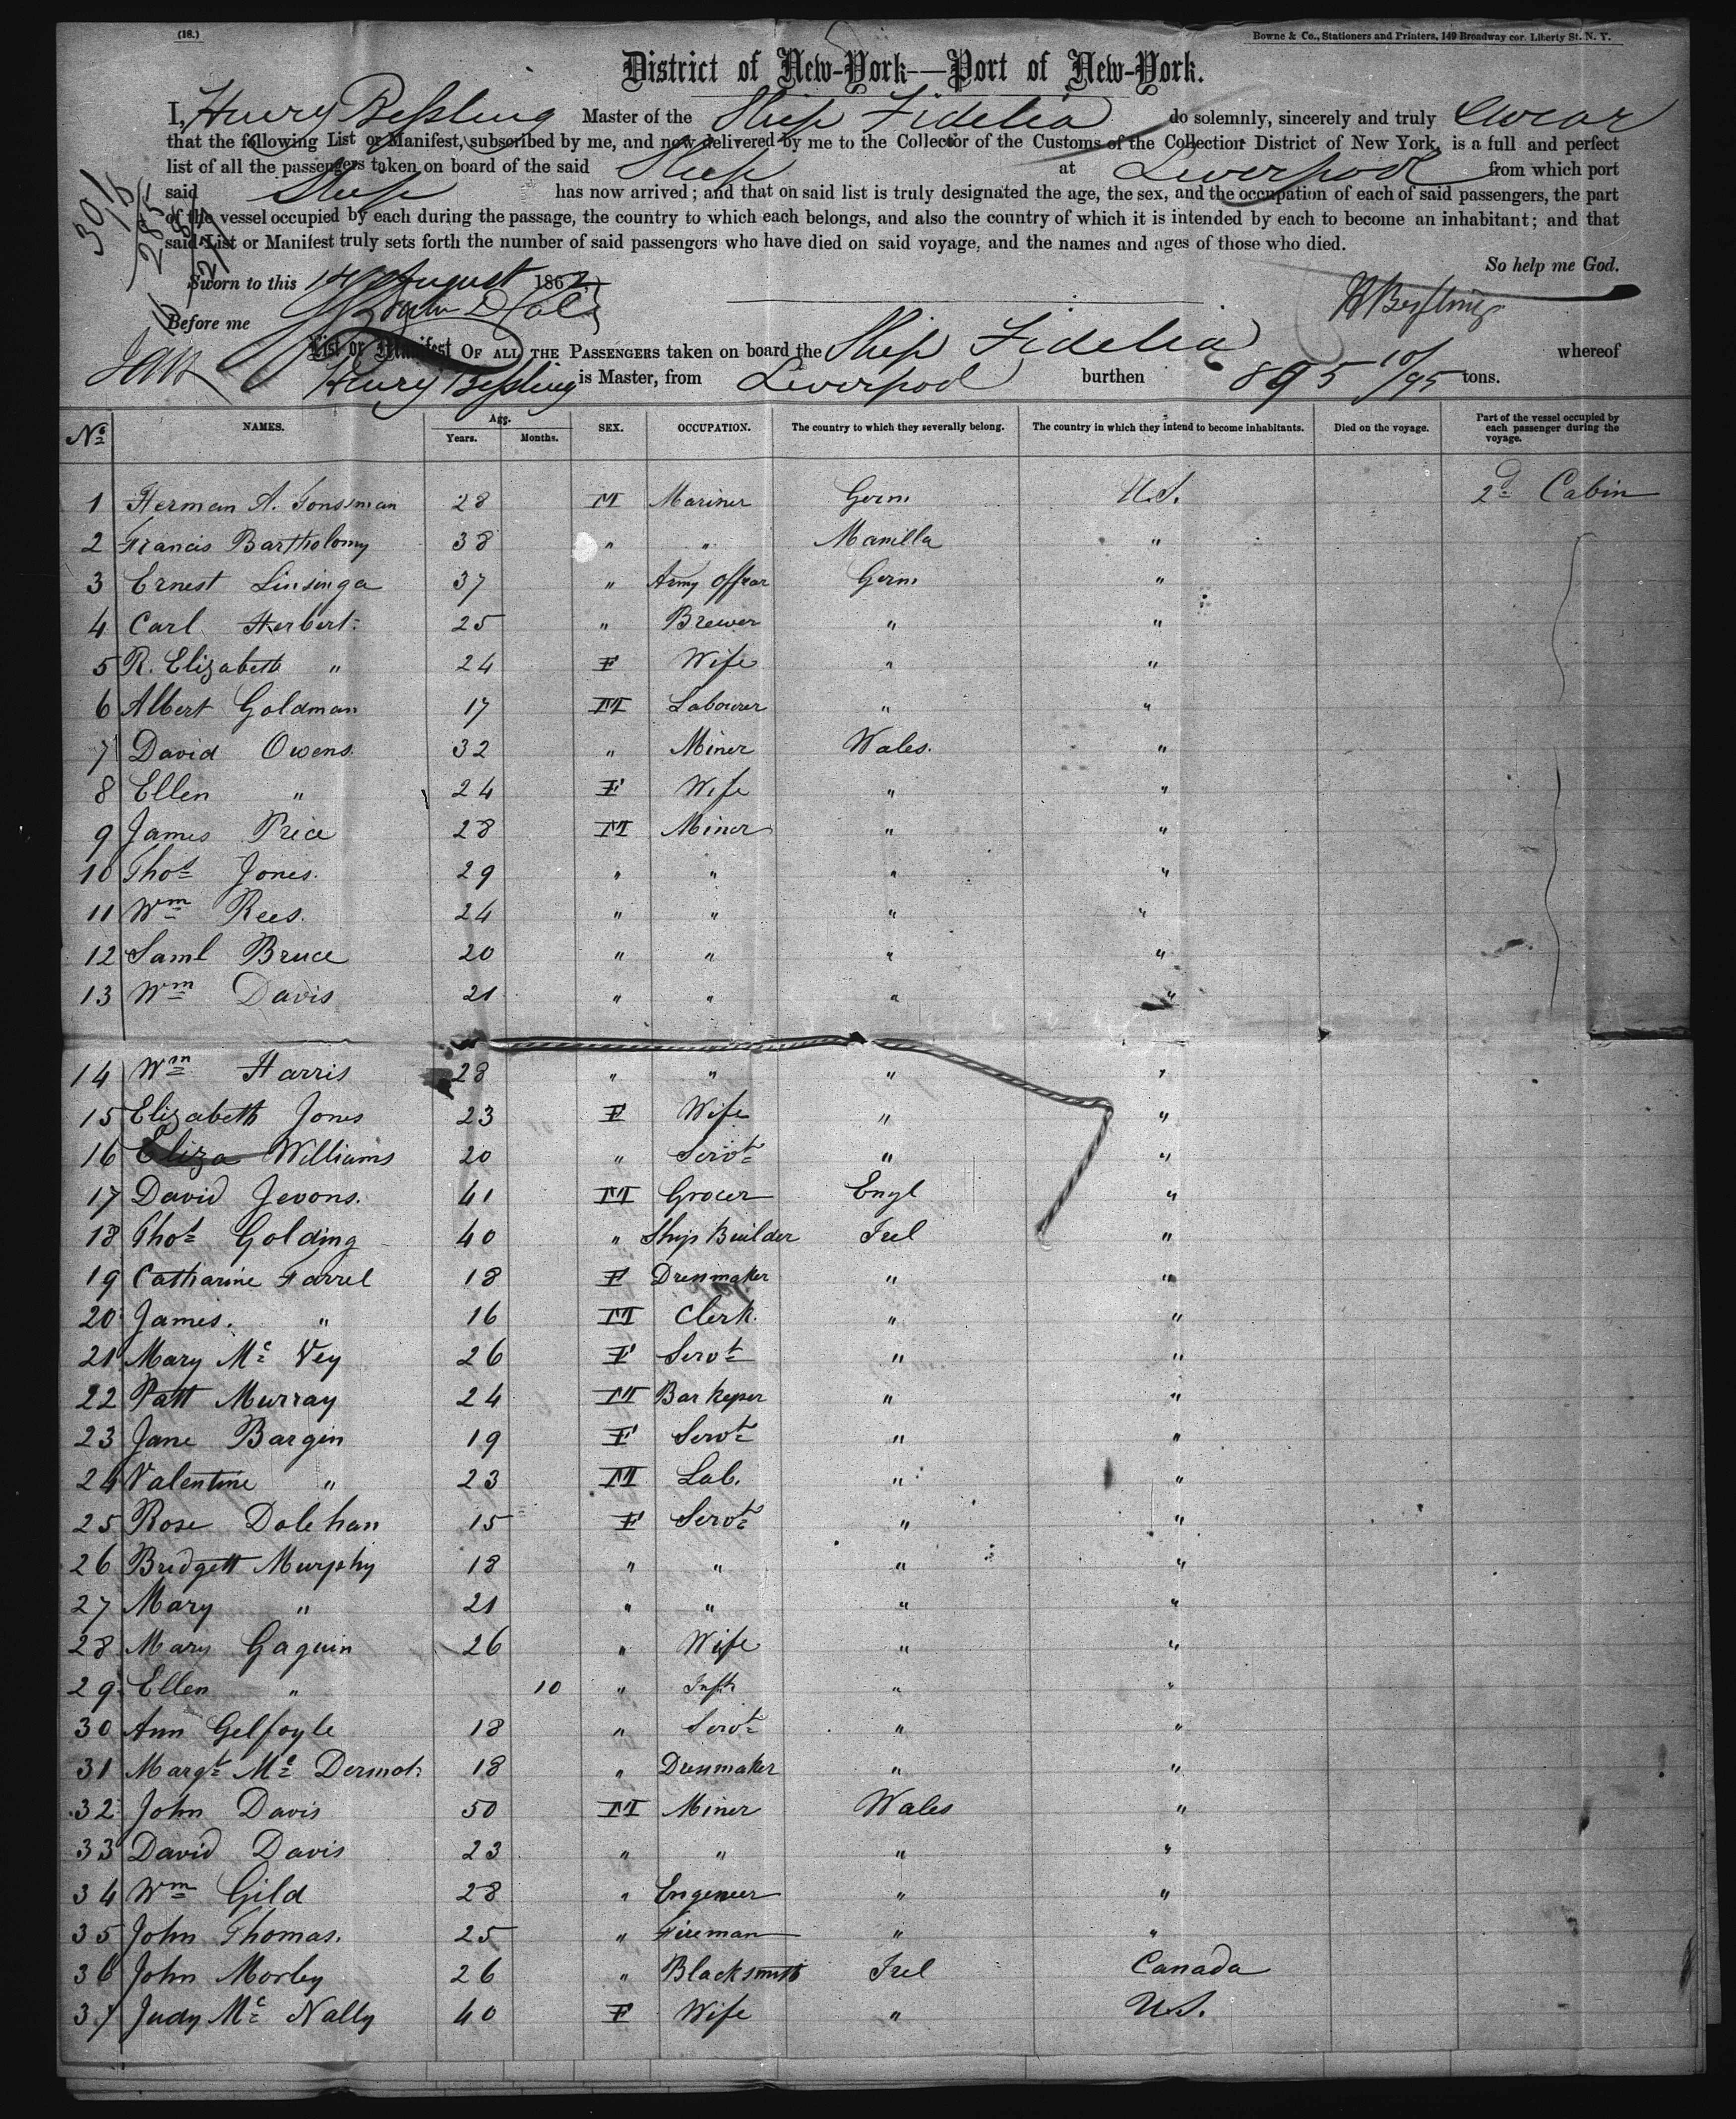 (18.)
Bowne & Co., Stationers and Printers, 149 Broadway cor. Liberty St. N. Y.
District of New-York—Port of New-York.
I, Henry Beßling Master of the Ship Fidelia do solemnly, sincerely and truly Swear
that the following List or Manifest, subscribed by me, and now delivered by me to the Collector of the Customs of the Collection District of New York, is a full and perfect
list of all the passengers taken on board of the said Ship at Liverpool from which port
said Ship has now arrived; and that on said list is truly designated the age, the sex, and the occupation of each of said passengers, the part
of the vessel occupied by each during the passage, the country to which each belongs, and also the country of which it is intended by each to become an inhabitant; and that
said List or Manifest truly sets forth the number of said passengers who have died on said voyage, and the names and ages of those who died.
So help me God.
Sworn to this 14 August 1862
H Beßling
Before me
List or Manifest OF ALL THE PASSENGERS taken on board the Ship Fidelia whereof
Henry Beßling is Master, from Liverpool burthen 895 10/95 tons.
No. NAMES. Age. Years. Months. SEX. OCCUPATION. The country to which they severally belong. The country in which they intend to become inhabitants. Died on the voyage. Part of the vessel occupied by each passenger during the voyage.
1 Herman A. Tonssman 28 M Mariner Germ U.S. 2d Cabin
2 Francis Bartholomy 38 " " Manilla "
3 Ernest Linsinga 37 " Army Officer Germ "
4 Carl Herbert 25 " Brewer " "
5 R. Elizabeth " 24 F Wife " "
6 Albert Goldman 17 M Labourer " "
7 David Owens. 32 " Miner Wales. "
8 Ellen " 24 F Wife " "
9 James Price 28 M Miner " "
10 Thos Jones. 29 " " " "
11 Wm Rees. 24 " " " "
12 Saml Bruce 20 " " " "
13 Wm Davis 21 " " " "
14 Wm Harris 28 " " " "
15 Elizabeth Jones 23 F Wife " "
16 Eliza Williams 20 " Servt " "
17 David Jevons. 41 M Grocer Engl "
18 Thos Golding 40 " Ship Builder Irel "
19 Catharine Farrel 18 F Dressmaker " "
20 James. " 16 M Clerk. " "
21 Mary Mc Vey 26 F Servt " "
22 Patt Murray 24 M Bar Keper " "
23 Jane Bargin 19 F Servt " "
24 Valentine " 23 M Lab. " "
25 Rose Dolehan 15 F Servt " "
26 Bridgett Murphy 18 " " " "
27 Mary " 21 " " " "
28 Mary Gaquin 26 " Wife " "
29 Ellen " 10 " Inft " "
30 Ann Gelfoyle 18 " Servt " "
31 Margt Mc Dermot 18 " Dressmaker " "
32 John Davis 50 M Miner Wales "
33 David Davis 23 " " " "
34 Wm Gild 28 " Engeneer " "
35 John Thomas. 25 " Fireman " "
36 John Morley 26 " Blacksmith Irel Canada
37 Judy Mc Nally 40 F Wife " U.S.